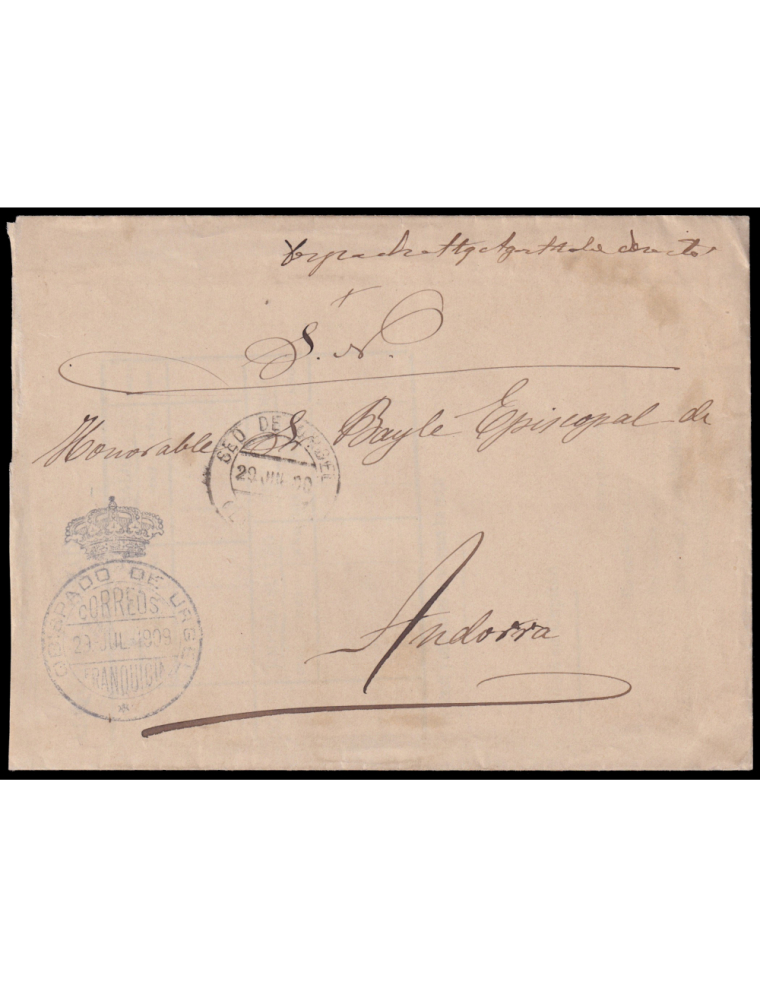 S. N.
Honorable Sr Bayle Episcopal de
SEO DE URGEL
29 JUL 90
OBISPADO DE URGEL
CORREOS
29 JUL 1909
FRANQUICIA
Andorra